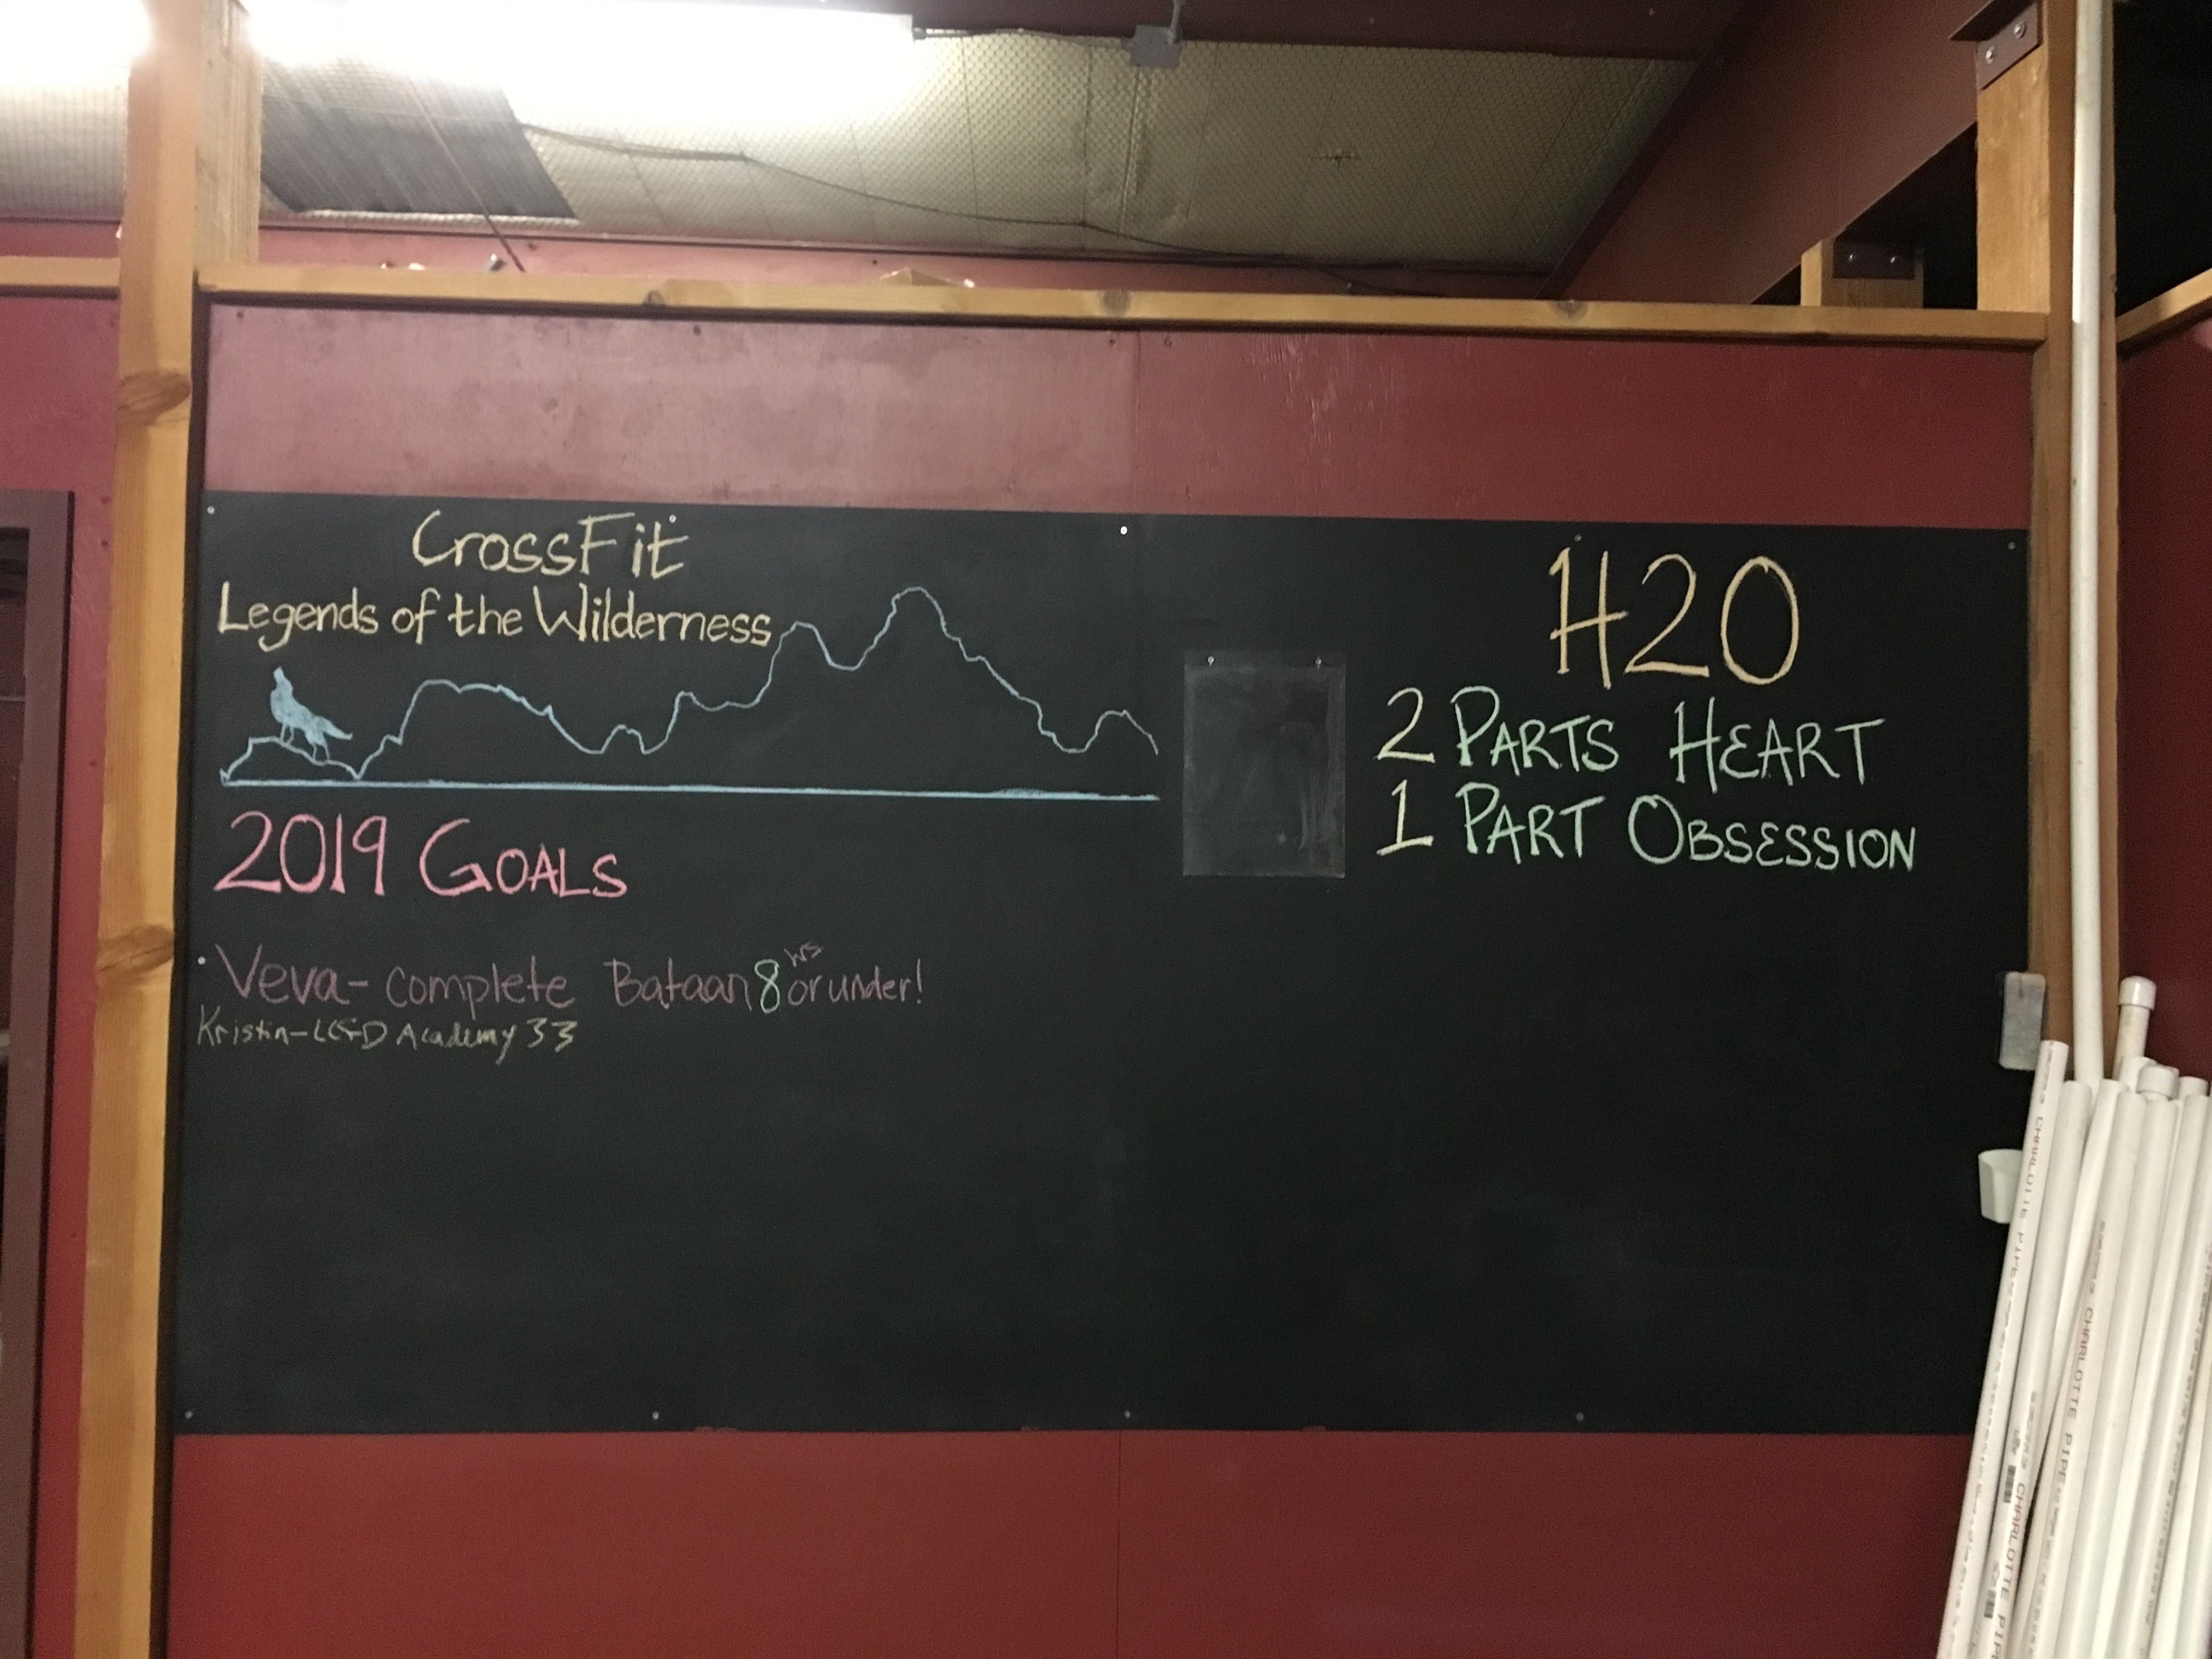 CrossFit
Legends of the Wilderness
2019 GOALS
Veva - complete Bataan 8 hrs or under!
Kristin - LCFD Academy 33
H20
2 PARTS HEART
1 PART OBSESSION
CHARLOTTE PIPE
CHARLOTTE PIPE
CHARLOTTE PIPE